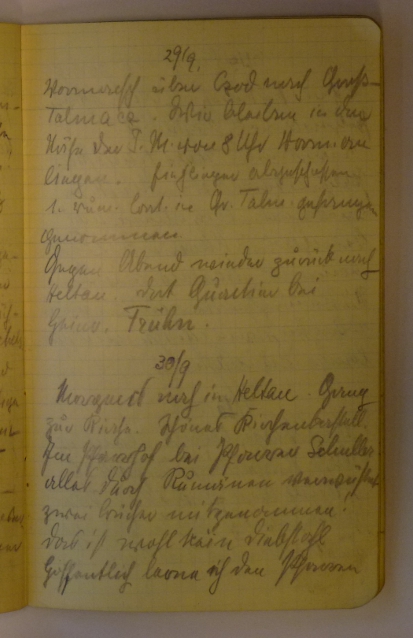 29/9.
Vormarsch über Czod nach Groß-
Talmacz. Wir bleiben in der
Nähe der I. M. von 8 Uhr Vorm. an
liegen. Flieger abgeschossen
1. rum. in Gr. Talm. gefangen
genommen.
Gegen Abend wieder zurück nach
Heltau. dort Quartier bei
Frühn.
30/9
Morgens noch in Heltau. Gang
zur Kirche. Schönes Kirchenkastell.
Im Pfarrhof bei Pfarrer Schuller
alles durch Rumänen verwüstet
zwei Bücher mitgenommen!
das ist wohl kein Diebstahl
Hoffentlich lerne ich den Pfarrer